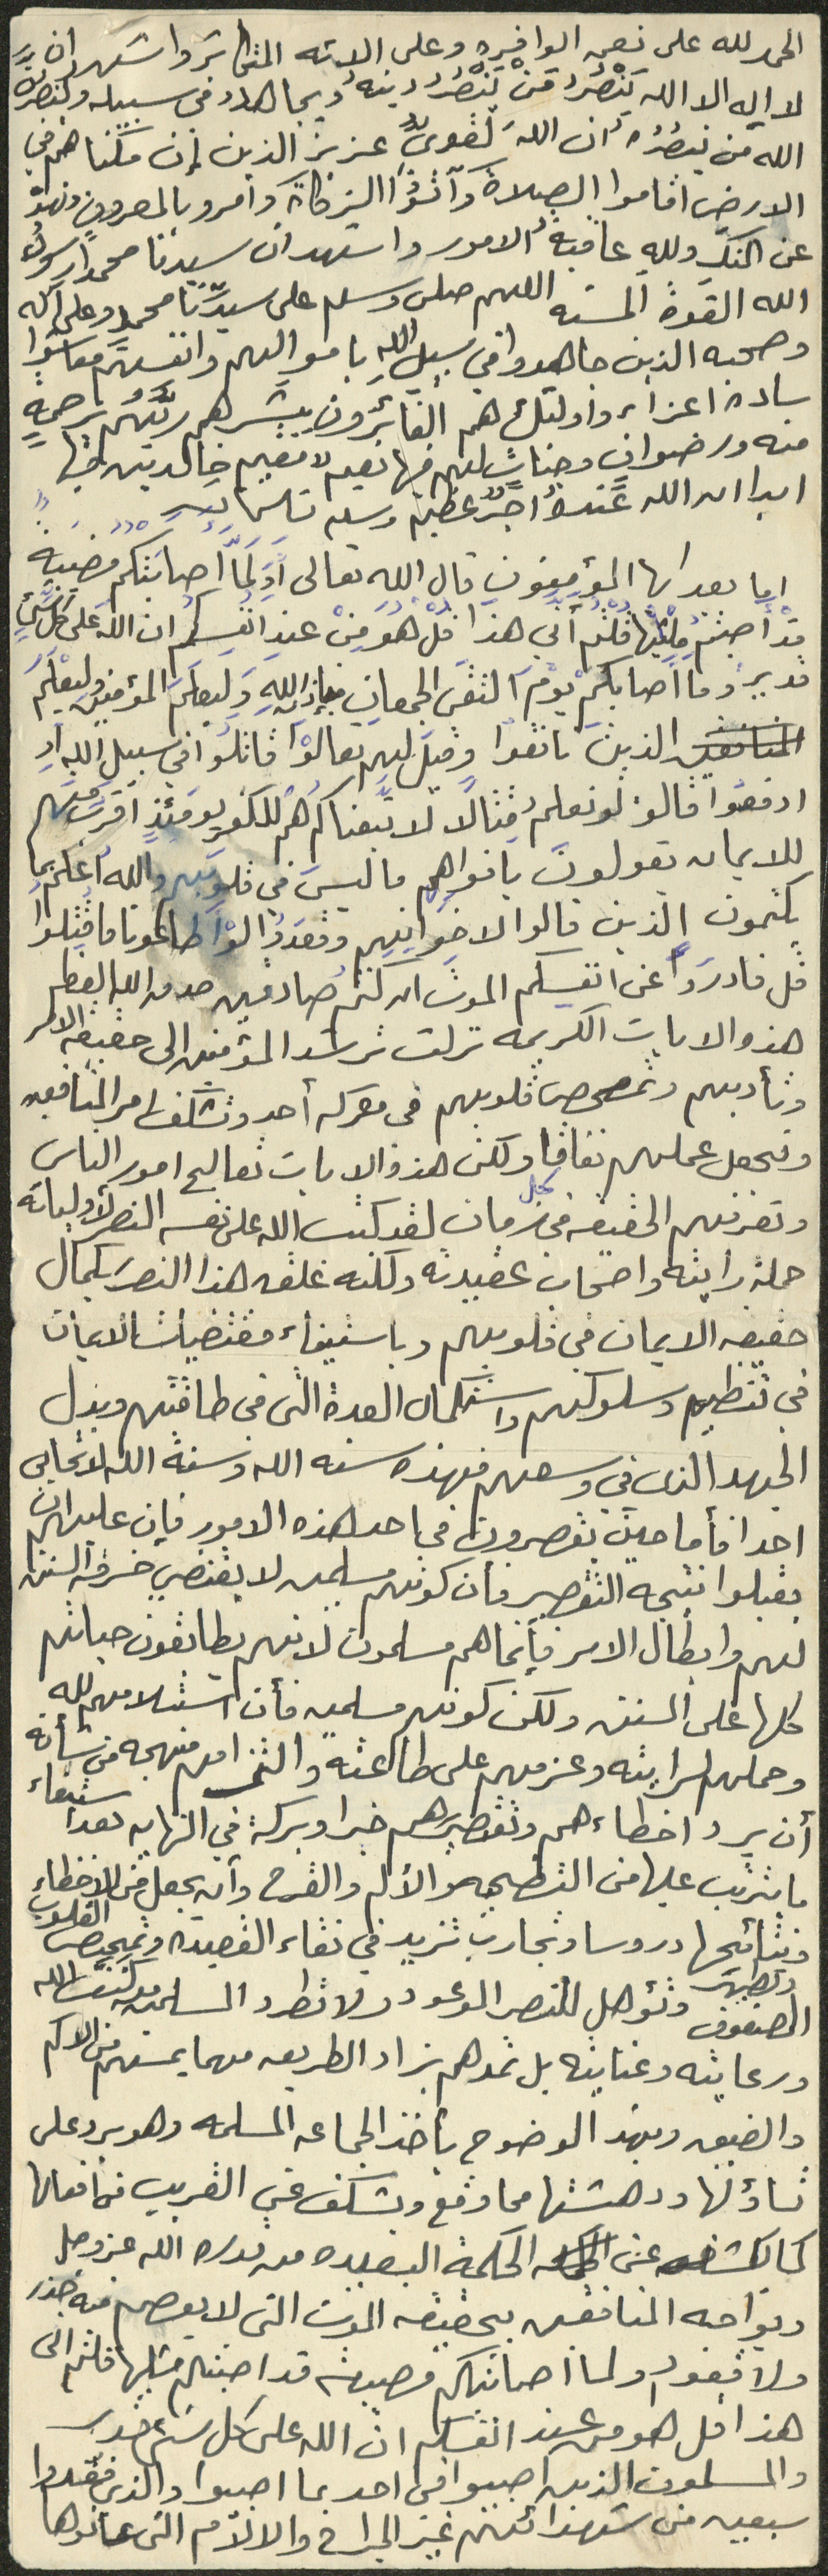 الحمد لله على نعمه الوافره وعلى الائه المتكاثره واشهد ان
لا اله الا الله يَنْصُرُ مَنْ يَنْصُرُ دينه ويجاهد في سبيله ولينصرن
الله من ينصُرُه ان الله لقويٌّ عزيز الذين إن مكناهم في
الارض اقاموا الصلاة وآتَوُا الزكاة وأمروا بالمعروف ونهوْ
عن المنكر ولله عاقبة الامور واشهد ان سيدنا محمدا رسول
الله القدوة الحسنه اللهم صلى وسلم على سيدنا محمد وعلى آله
وصحبه الذين جاهدوا في سبيل الله باموالهم وانفسهم فعاشوا
ساده اعزاء واولئك هم الفائزون يبشرهم ربُّهُم برحمةٍ
منه ورضوانٍ وجناتٍ لهم فيها نعيم مقيم خالدين فيها
ابدا ان الله عنده أجرٌ عظيم وسلم تسليما
اما بعد ايها المؤمنون قال الله تعالى أَوَلَمَّا أصابَتْكم مُصيبة
قدْ أصبتم مِثْلَيْها قُلْتم أنى هذا قُلْ هُوَ مِنْ عند انفسكم ان الله على كل شيءٍ
قديرٌ وما أصابكم يوْمَ التقَى الجمعانِ فبإذن اللهِ وَليعلمَ المؤمنين وليعْلَمَ
الذينَ نافقوا وقيلَ لهم تعالَوْا قاتلُوا في سبيلِ اللهِ أو
ادفعُوا قالوا لو نعلم قتالًا لا تَّبعناكم هُمْ للكفر يومئذٍ أقرب منهم
للايمان يقولونَ بافواههم ما ليسَ في قلوبهم والله أعلم بما
يكتمون الذين قالوا لاخوانِهم وقعَدُوا لوْ أطاعونا ما قُتِلوا
قل فادرءوا عن انفسكم الموت ان كنتم صادقين صدق الله العظيم
هذه الايات الكريمه نزلت ترشد المؤمنين الى حقيقة الامر
وتأديبهم وتمحيص قلوبهم في معركه أحد وتكشف امر المنافقين
وتجعل عملهم نفاقا ولكن هذه الايات تعالج امور الناس
وتعرفهم الحقيقه في كل زمان لقد كتب الله على نفسه النصر لأوليائه
حملة رايته واصحاب عقيدته ولكنه علق هذا النصر بكمال
حقيقه الايمان في قلوبهم وباستيفاء مقتضيات الايمان
في تنظيمهم وسلوكهم واستكمال العدة التى في طاقتهم وبذل
الجهد الذى في وسعهم فهذه سنه الله وسنة الله لا تحابى
احدا فأما حين يقصرون في احد هذه الامور فإن عليهم ان
يقبلوا نتيجه التقصير فأن كونهم مسلمين لا يقتضي خرق السنن
لهم وابطال الامر فإنما هم مسلمون لانهم يطابقون حياتهم
كلها على السنن ولكن كونهم مسلمين فأن استلامهم لله
وحملهم لرايته وعزمهم على طاعته والتزامهم منهجه من شأنه
أن يرد اخطاءهم وتقصيرهم خيرا وبركة في النهايه بعد استيفاء
ما يترتب عليها من التضحيه والألم والقرح وأن يجعل من الاخطاء
ونتائجها دروسا وتجارب تزيد في نقاء العقيده وتمحيص القلوب
وتطهير الصفوف وتؤهل للنصر الموعود ولا تطرد المسلمين من كنف الله
ورعايته وعنايته بل تمدهم بزاد الطريق مهما يمسهم من الالم
والضيق وبهذ الوضوح يأخذ الجماعه المسلمه وهو يرد على
تساؤلها ودهشتها مما وقع ويكشف عن القريب من أفعالها
كما يكشف عن الحكمة البعيده من قدره الله عز وجل
ويواجه المنافقين بحقيقه الموت التى لا يعصم منه حذر
ولا قعود اولما اصابتكم مصيبه قد اصبتم مثليها قلتم انى
هذا قل هو من عند انفسكم ان الله على كل شىء قدير
والمسلمون الذين اصيبوا في احد بما اصيبوا والذى فقدوا
سبعين من شهدائهم غير الجراح والالام التى عانوها